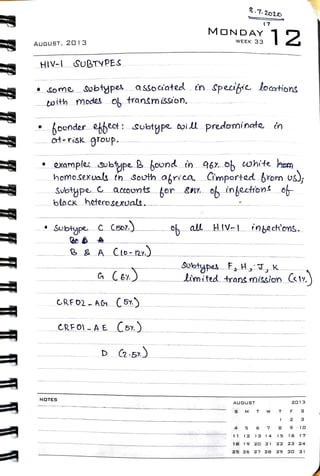 8.7.2020
17
AUGUST, 2013
MONDAY 12
WEEK 33
HIV-I SUBTYPES
• some subtypes associated in specific locations
with modes of transmission.
• founder effect: subtype will predominate in
at-risk group.
• example: subtype B found in 96% of white
homosexuals in south africa (imported from US);
subtype C accounts for 81% of infections of
black heterosexuals.
• Subtype C (50%) of all HIV-1 infections.
B & A (10-12%)
G (6%)
Subtypes F, H, J, K
limited transmission (<1%)
CRF02-AG (5%)
CRF01-AE (5%)
D (2.5%)
NOTES
AUGUST 2013
S M T W T F S
1 2 3
4 5 6 7 8 9 10
11 12 13 14 15 16 17
18 19 20 21 22 23 24
25 26 27 28 29 30 31